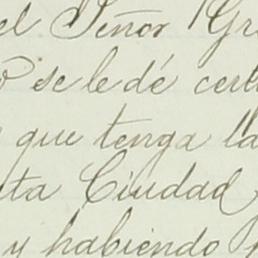 el Señor Gr
se le dé cert
que tenga la
ta Ciudad
y habiendo p